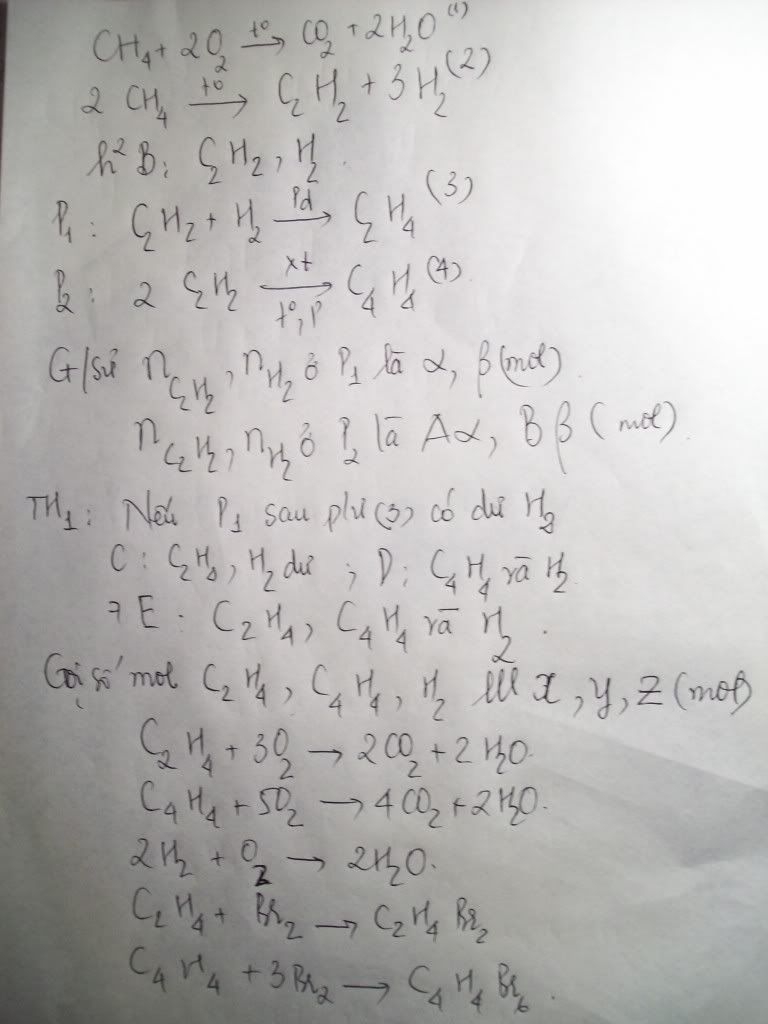 CH₄ + 2O₂ t⁰→ CO₂ + 2H₂O (1)
2 CH₄ t⁰→ C₂H₂ + 3H₂ (2)
h² B: C₂H₂, H₂.
P₁ : C₂H₂ + H₂ Pd→ C₂H₄ (3)
P₂ : 2 C₂H₂ xt→ t⁰, P C₄H₄ (4)
G/sử n C₂H₂, n H₂ ở P₁ là α, β (mol).
n C₂H₂, n H₂ ở P₂ là Aα, Bβ (mol).
TH₁: Nếu P₁ sau pư (3) có dư H₂
C : C₂H₄, H₂ dư ; D: C₄H₄ và H₂.
7 E : C₂H₄, C₄H₄ và H₂.
Gọi số mol C₂H₄, C₄H₄, H₂ lll x, y, z (mol)
C₂H₄ + 3O₂ → 2CO₂ + 2H₂O.
C₄H₄ + 5O₂ → 4CO₂ + 2H₂O.
2H₂ + O₂ → 2H₂O.
C₂H₄ + Br₂ → C₂H₄Br₂
C₄H₄ + 3Br₂ → C₄H₄Br₆.